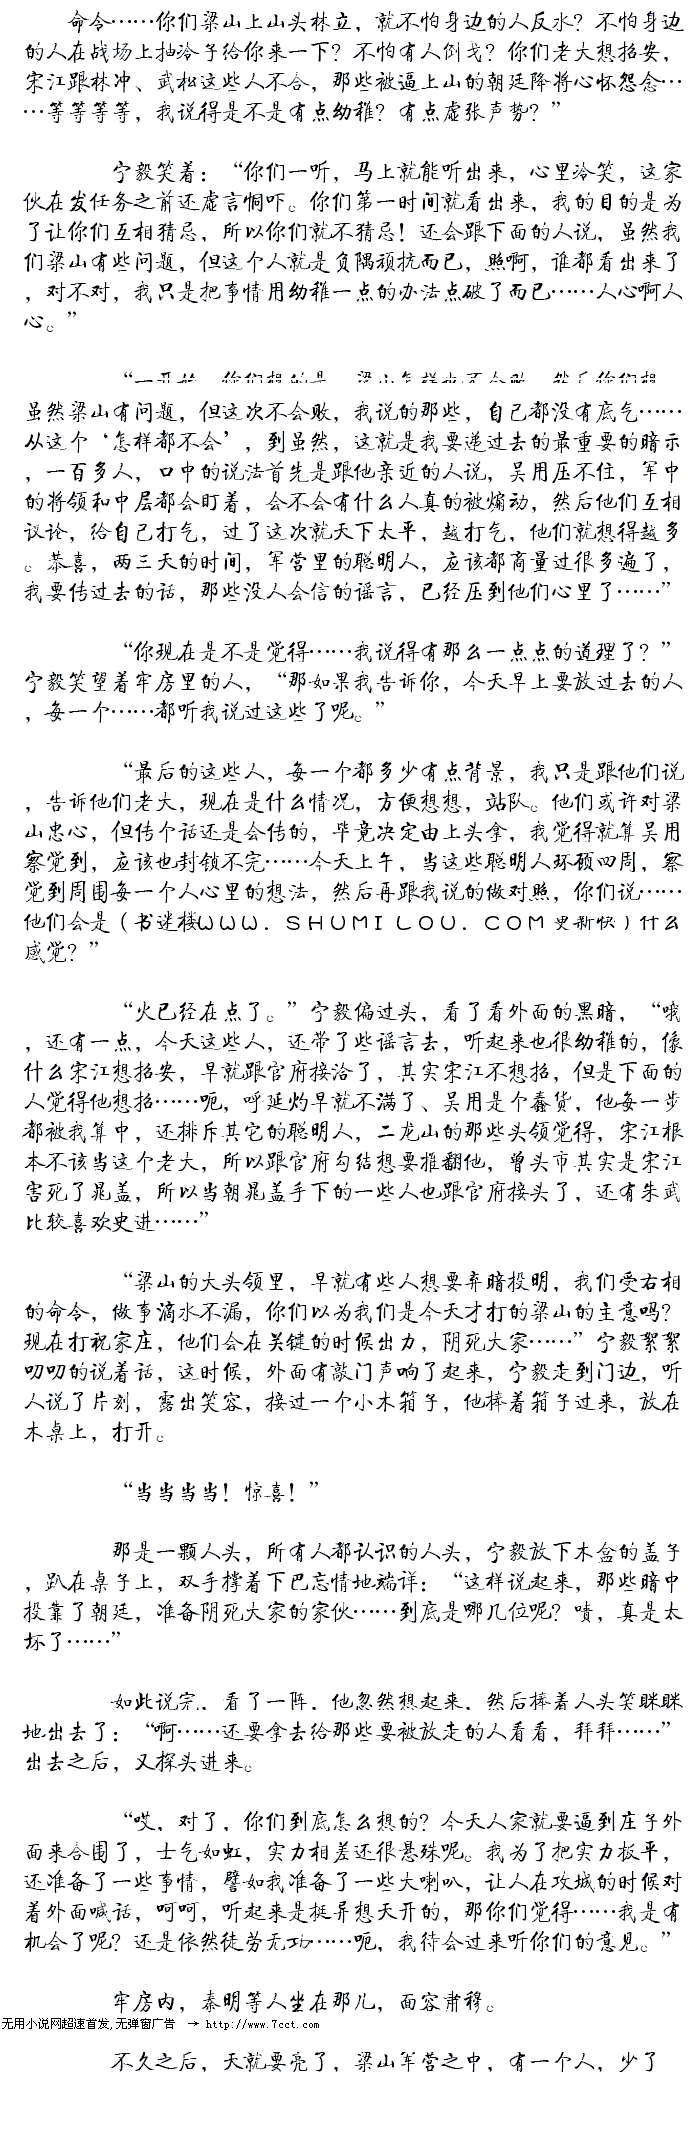 命令……你们梁山上山头林立，就不怕身边的人反水？不怕身边
的人在战场上抽冷子给你来一下？不怕有人倒戈？你们老大想招安，
宋江跟林冲、武松这些人不合，那些被逼上山的朝廷降将心怀怨念…
…等等等等，我说得是不是有点幼稚？有点虚张声势？”
宁毅笑着：“你们一听，马上就能听出来，心里冷笑，这家
伙在发任务之前还虚言恫吓。你们第一时间就看出来，我的目的是为
了让你们互相猜忌，所以你们就不猜忌！还会跟下面的人说，虽然我
们梁山有些问题，但这个人就是负隅顽抗而已，照啊，谁都看出来了
，对不对，我只是把事情用幼稚一点的办法点破了而已……人心啊人
心。”
“一开始，你们想的是，梁山怎样也不会败，然后你们想，
虽然梁山有问题，但这次不会败，我说的那些，自己都没有底气……
从这个‘怎样都不会’，到虽然，这就是我要递过去的最重要的暗示
，一百多人，口中的说法首先是跟他亲近的人说，吴用压不住，军中
的将领和中层都会盯着，会不会有什么人真的被煽动，然后他们互相
议论，给自己打气，过了这次就天下太平，越打气，他们就想得越多
。恭喜，两三天的时间，军营里的聪明人，应该都商量过很多遍了，
我要传过去的话，那些没人会信的谣言，已经压到他们心里了……”
“你现在是不是觉得……我说得有那么一点点的道理了？”
宁毅笑望着牢房里的人，“那如果我告诉你，今天早上要放过去的人
，每一个……都听我说过这些了呢。”
“最后的这些人，每一个都多少有点背景，我只是跟他们说
，告诉他们老大，现在是什么情况，方便想想，站队。他们或许对梁
山忠心，但传个话还是会传的，毕竟决定由上头拿，我觉得就算吴用
察觉到，应该也封锁不完……今天上午，当这些聪明人环顾四周，察
觉到周围每一个人心里的想法，然后再跟我说的做对照，你们说……
他们会是（书迷楼ＷＷＷ．ＳＨＵＭＩＬＯＵ．ＣＯＭ更新快）什么
感觉？”
“火已经在点了。”宁毅偏过头，看了看外面的黑暗，“哦
，还有一点，今天这些人，还带了些谣言去，听起来也很幼稚的，像
什么宋江想招安，早就跟官府接洽了，其实宋江不想招，但是下面的
人觉得他想招……呃，呼延灼早就不满了、吴用是个蠢货，他每一步
都被我算中，还排斥其它的聪明人，二龙山的那些头领觉得，宋江根
本不该当这个老大，所以跟官府勾结想要推翻他，曾头市其实是宋江
害死了晁盖，所以当朝晁盖手下的一些人也跟官府接头了，还有朱武
比较喜欢史进……”
“梁山的大头领里，早就有些人想要弃暗投明，我们受右相
的命令，做事滴水不漏，你们以为我们是今天才打的梁山的主意吗？
现在打祝家庄，他们会在关键的时候出力，阴死大家……”宁毅絮絮
叨叨的说着话，这时候，外面有敲门声响了起来，宁毅走到门边，听
人说了片刻，露出笑容，接过一个小木箱子，他捧着箱子过来，放在
木桌上，打开。
“当当当当！惊喜！”
那是一颗人头，所有人都认识的人头，宁毅放下木盒的盖子
，趴在桌子上，双手撑着下巴忘情地端详：“这样说起来，那些暗中
投靠了朝廷，准备阴死大家的家伙……到底是哪几位呢？啧，真是太
坏了……”
如此说完，看了一阵，他忽然想起来，然后捧着人头笑眯眯
地出去了：“啊……还要拿去给那些要被放走的人看看，拜拜……”
出去之后，又探头进来。
“哎，对了，你们到底怎么想的？今天人家就要逼到庄子外
面来合围了，士气如虹，实力相差还很悬殊呢。我为了把实力扳平，
还准备了一些事情，譬如我准备了一些大喇叭，让人在攻城的时候对
着外面喊话，呵呵，听起来是挺异想天开的，那你们觉得……我是有
机会了呢？还是依然徒劳无功……呃，我待会过来听你们的意见。”
牢房内，秦明等人坐在那儿，面容肃穆。
无用小说网超速首发,无弹窗广告 → http://www.7cct.com
不久之后，天就要亮了，梁山军营之中，有一个人，少了